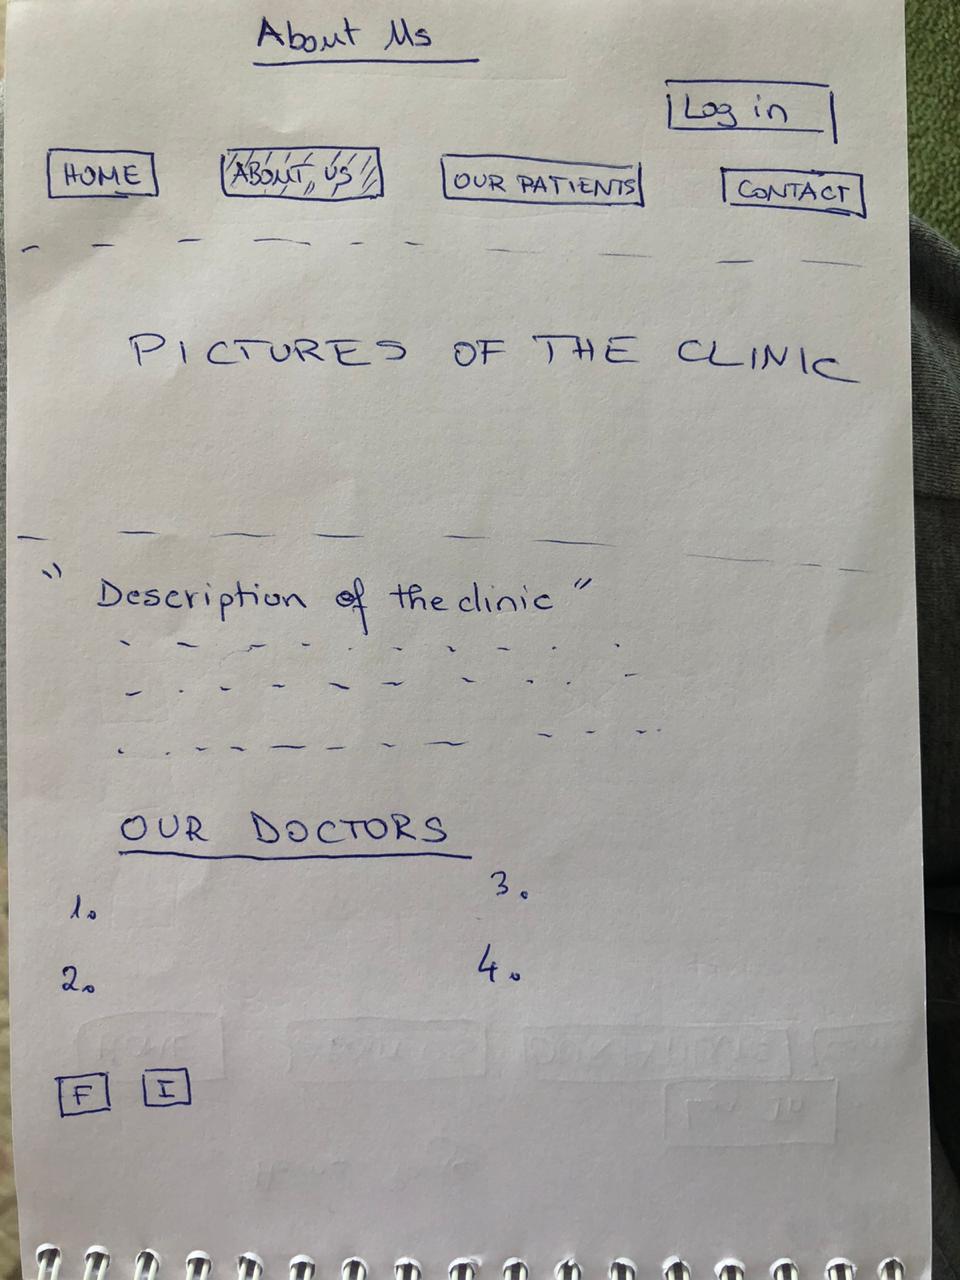 About Us
Log in
HOME
ABOUT US
OUR PATIENTS
CONTACT
PICTURES OF THE CLINIC
" Description of the clinic "
OUR DOCTORS
1.
3.
2.
4.
F
I